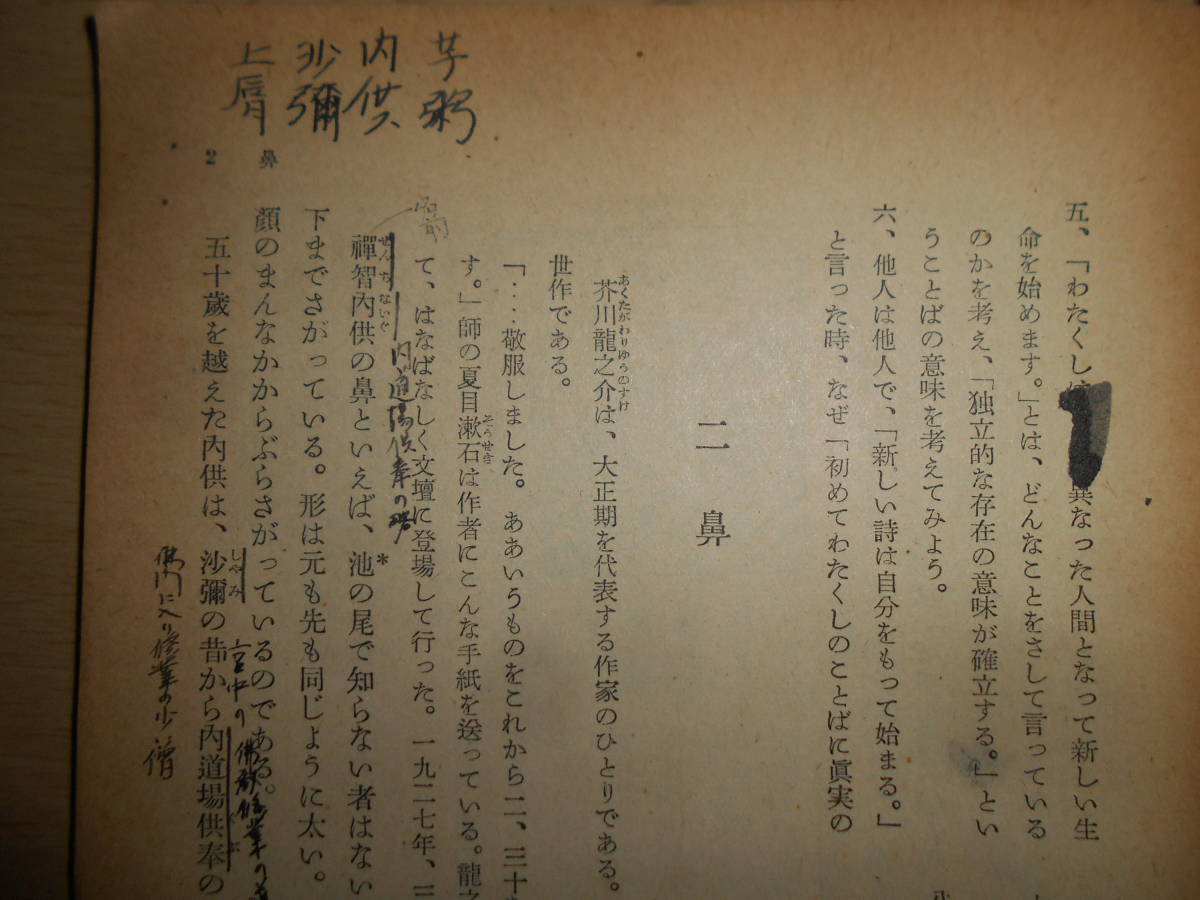 芋粥
内供
沙彌
上唇
五、「わたくしは
異なった人間となって新しい生
命を始めます。」とは、どんなことをさして言っている
のかを考え、「独立的な存在の意味が確立する。」とい
うことばの意味を考えてみよう。
六、他人は他人で、「新しい詩は自分をもって始まる。」
と言った時、なぜ「初めてわたくしのことばに眞実の
二 鼻
あくたがわりゆうのすけ
芥川龍之介は、大正期を代表する作家のひとりである。
世作である。
「‥‥敬服しました。ああいうものをこれから二、三十
そうせき
す。」師の夏目漱石は作者にこんな手紙を送っている。龍之
て、はなばなしく文壇に登場して行った。一九二七年、三
内道場供奉の略
ぜんちないぐ
禪智内供の鼻といえば、池の尾で知らない者はない
*
下までさがっている。形は元も先も同じように太い。
顔のまんなかからぶらさがっているのである。
宮中の佛教修業の
しやみ
ぐぶ
五十歳を越えた内供は、沙彌の昔から内道場供奉の
佛門に入り修業の少僧
2 鼻